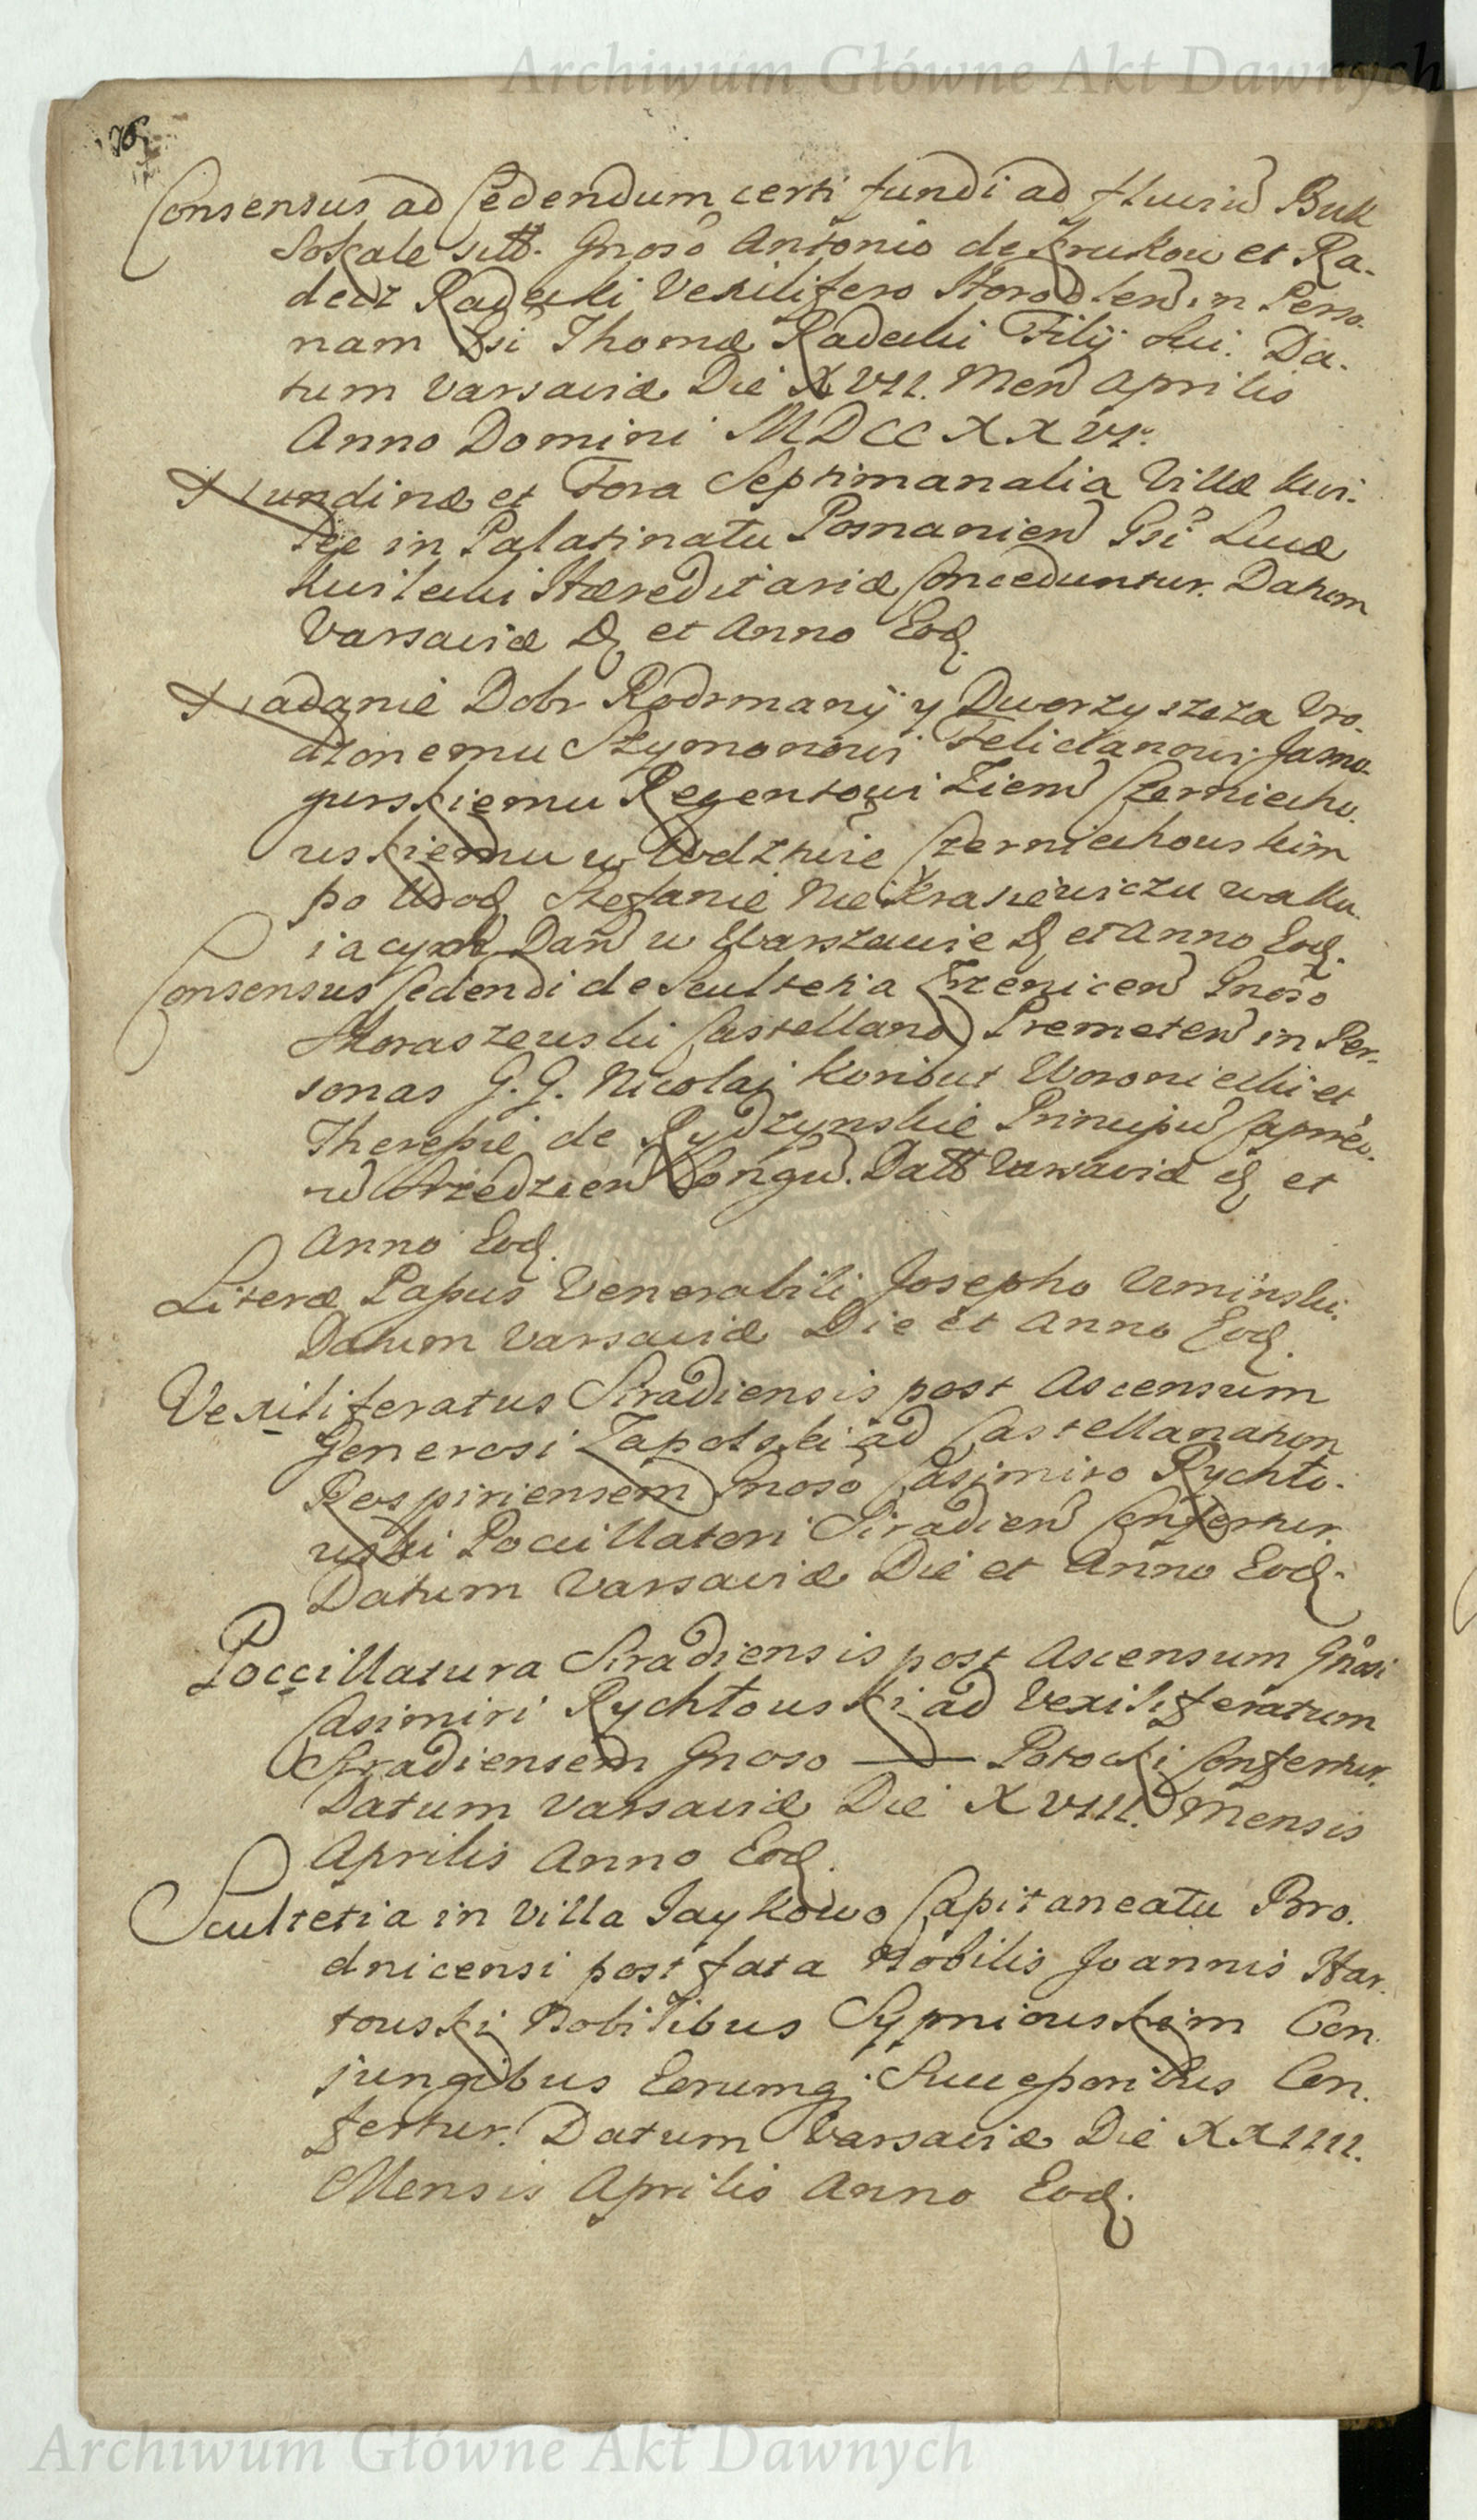 Archiwum Główne Akt Dawnych
Consensus ad Cedendum certi fundi ad fluviũ Buk
Sokale sitt. Gnoso Antonio de Krukow et Ra-
decz Radecki Vexilifero Horodlen in Perso-
nam Gsi Thomæ Radecki Filij sui. Da-
tum Varsaviæ Die XVII. Men Aprilis
Anno Domini MDCCXXVI.
Nundinæ et Fora Septimanalia Villæ Kwi-
lcze in Palatinatu Posnanien Gsi Lucæ
Kwilecki Hæreditariæ Conceduntur. Datum
Varsaviæ D et Anno Eod.
Nadanie Dobr Rodrmanÿ y Dworzyszcza Uro-
dzonemu Szymonowi Felicianowi Jasno-
gurskiemu Regentowi Ziem Czerniecho-
wskiemu w Wdztwie Czerniechowskim
po Urod Stefanie Niekrasiewiczu waku-
iacych Dan w Warszawie D et Anno Eod.
Consensus Cedendi de Scultetia Gnoso
Skoraszewski Castellano Premeten in Per-
sonas G.G. Nicolai Koribut Woroniecki et
Theressie de Rydzynskie Principũ Capneo-
rũ Congũ. Datt Varsaviæ D et
Anno Eod.
Literæ Passus Venerabili Josepho Uminski.
Datum Varsaviæ Die et Anno Eod.
Vexiliferatus Siradiensis post Ascensum
Generosi Zapolski ad Castellanatum
Rospiriensem Gnoso Casimiro Rychło-
wski Pocillatori Siradien Confertur.
Datum Varsaviæ Die et Anno Eod.
Poccillatura Siradiensis post Ascensum Gnosi
Casimiri Rychłowski ad Vexiliferatum
Siradiensem Gnoso —— Potocki Confertur.
Datum Varsaviæ Die XVIII. Mensis
Aprilis Anno Eod.
Scultetia in Villa Jaykowo Capitaneatu Bro-
dnicensi post fata Nobilis Joannis Har-
towski Nobilibus Sypniowskim Con-
jungibus Eorumq Successoribus Con-
fertur. Datum Varsaviæ Die XXIIII.
Mensis Aprilis Anno Eod.
Archiwum Główne Akt Dawnych